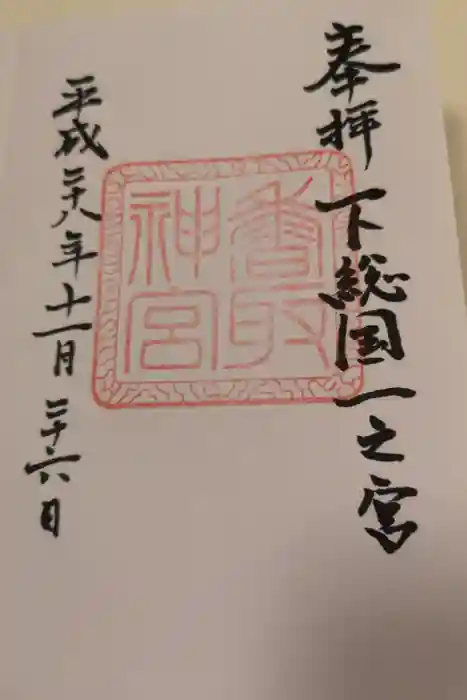 奉拝 下総国一之宮
香取
神宮
平成二十八年十一月二十六日